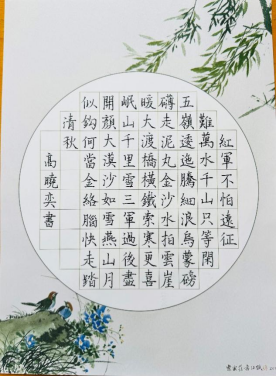 紅軍不怕遠征
難萬水千山只等閑
五嶺逶迤騰細浪烏蒙磅
礴走泥丸金沙水拍雲崖
暖大渡橋橫鐵索寒更喜
岷山千里雪三軍過後盡
開顏大漠沙如雪燕山月
似鈎何當金絡腦快走踏
清秋
高曉奕書